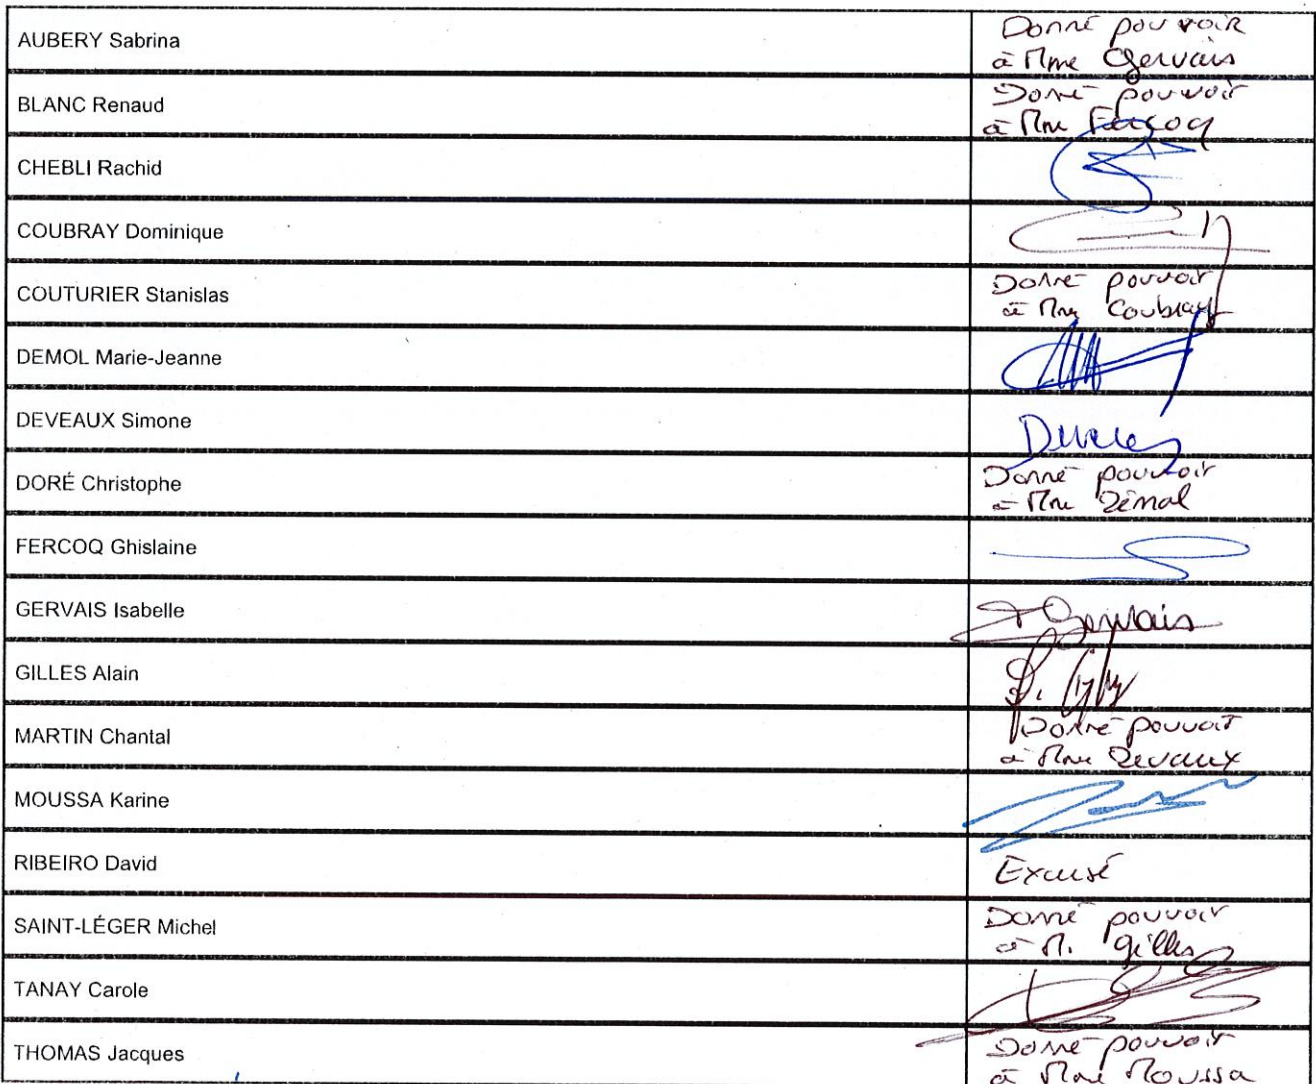 AUBERY Sabrina
Donné pouvoir
à Mme Gervais
BLANC Renaud
Donné pouvoir
à Mme Fercoq
CHEBLI Rachid
COUBRAY Dominique
COUTURIER Stanislas
Donné pouvoir
à Mme Coubray
DEMOL Marie-Jeanne
DEVEAUX Simone
DORÉ Christophe
Donné pouvoir
à Mme Démol
FERCOQ Ghislaine
GERVAIS Isabelle
Gervais
GILLES Alain
MARTIN Chantal
Donné pouvoir
à Mme Devaux
MOUSSA Karine
RIBEIRO David
Excusé
SAINT-LÉGER Michel
Donné pouvoir
à M. Gilles
TANAY Carole
THOMAS Jacques
Donné pouvoir
à Mme Moussa